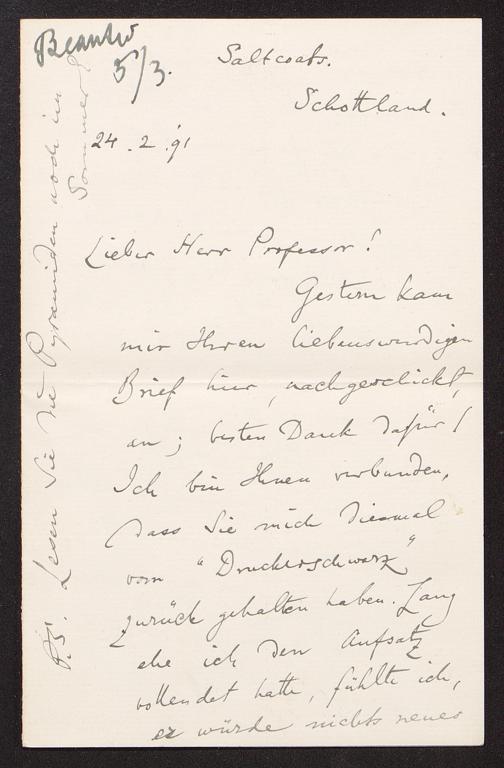 Beantw
5/3.
Saltcoats.
Schottland.
24.2.91
Lieber Herr Professor!
Gestern kam
mir Ihren liebenswürdigen
Brief hier, nachgeschickt,
an; besten Dank dafür!
Ich bin Ihnen verbunden,
dass Sie mich diesmal
vom "Druckerschwarz"
zurück gehalten haben. Lang
ehe ich den Aufsatz
vollendet hatte, fühlte ich,
es würde nichts neues
P.S. Lesen Sie die Pyramiden noch im
Sommer?